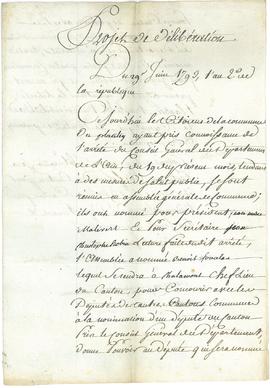 Projet de délibération
Du 29 Juin 1793, l'an 2e de
la république
Cejourdhui les Citoiens de la commune
du ayant pris connoissance de
l'arreté du Conseil Général du Departement
de l'Ain du 19 du présent mois, tendant
a des mesures de Salut public, se sont
reunis en assemblée générale de Commune;
ils ont nommé pour président
pour Secrétaire jean
lecture faite dudit arreté,
l'assemblée a nommé
lequel se rendra à Chalamont Chef lieu
du Canton, pour Concourir avec les
Députés de autres Communes
à la nomination d'un député du Canton
Près le Conseil Général du Département,
donne Pouvoir au député qui sera nommé